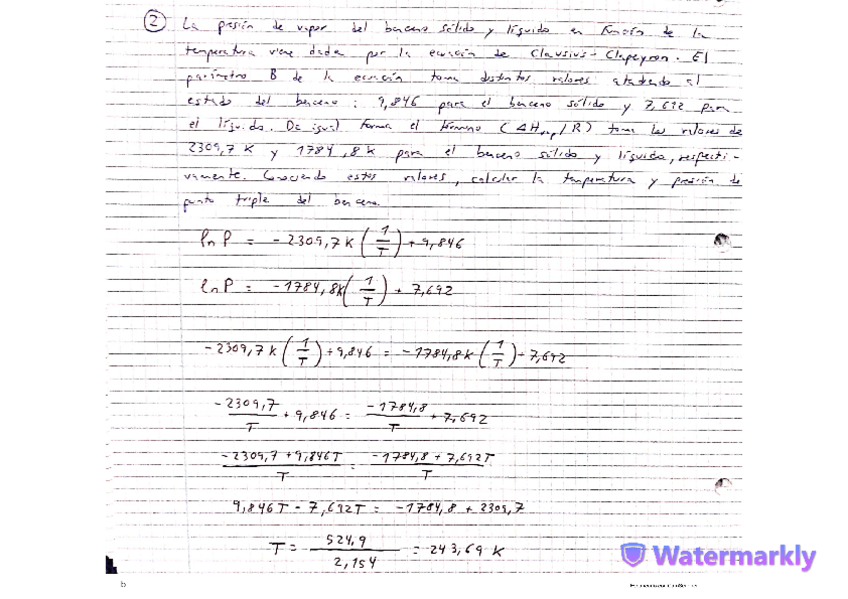 2 La presión de vapor del benceno sólido y líquido en función de la
temperatura viene dada por la ecuación de Clausius-Clapeyron. El
parámetro B de la ecuación toma distintos valores atendendo al
estado del benceno: 9,846 para el benceno sólido y 7,692 para
el líquido. De igual forma el término (ΔHvap/R) toma los valores de
2309,7 K y 1784,8 K para el benceno sólido y líquido, respecti-
vamente. Conociendo estos valores, calcular la temperatura y presión de
punto triple del benceno.
ln P = -2309,7 K (1/T) + 9,846
ln P = -1784,8K (1/T) + 7,692
-2309,7 K (1/T) + 9,846 = -1784,8 K (1/T) + 7,692
-2309,7/T + 9,846 = -1784,8/T + 7,692
(-2309,7 + 9,846T)/T = (-1784,8 + 7,692T)/T
9,846T - 7,692T = -1784,8 + 2309,7
T = 524,9/2,154 = 243,69 K
Watermarkly